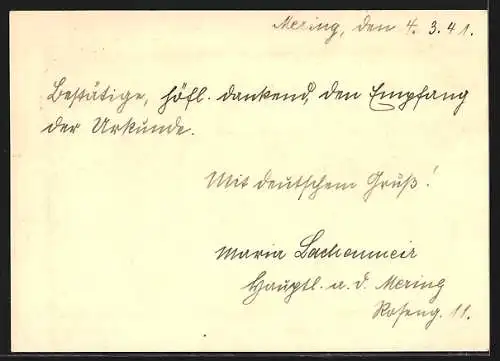 Mering, den 4. 3. 41.
Bestätige, höfl. dankend, den Empfang
der Urkunde.
Mit deutschem Gruß!
Maria Lachenmeir
Hauptl. a. d. Mering
Roseng. 11.